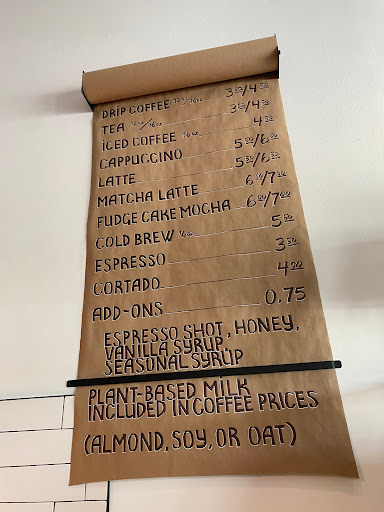 DRIP COFFEE 12oz/16oz 350/450
TEA 12oz/16oz 350/450
ICED COFFEE 16oz 450
CAPPUCCINO 550/650
LATTE 550/650
MATCHA LATTE 600/700
FUDGE CAKE MOCHA 600/700
COLD BREW 16oz 500
ESPRESSO 350
CORTADO 400
ADD-ONS 0.75
ESPRESSO SHOT, HONEY,
VANILLA SYRUP,
SEASONAL SYRUP
PLANT-BASED MILK
INCLUDED IN COFFEE PRICES
(ALMOND, SOY, OR OAT)